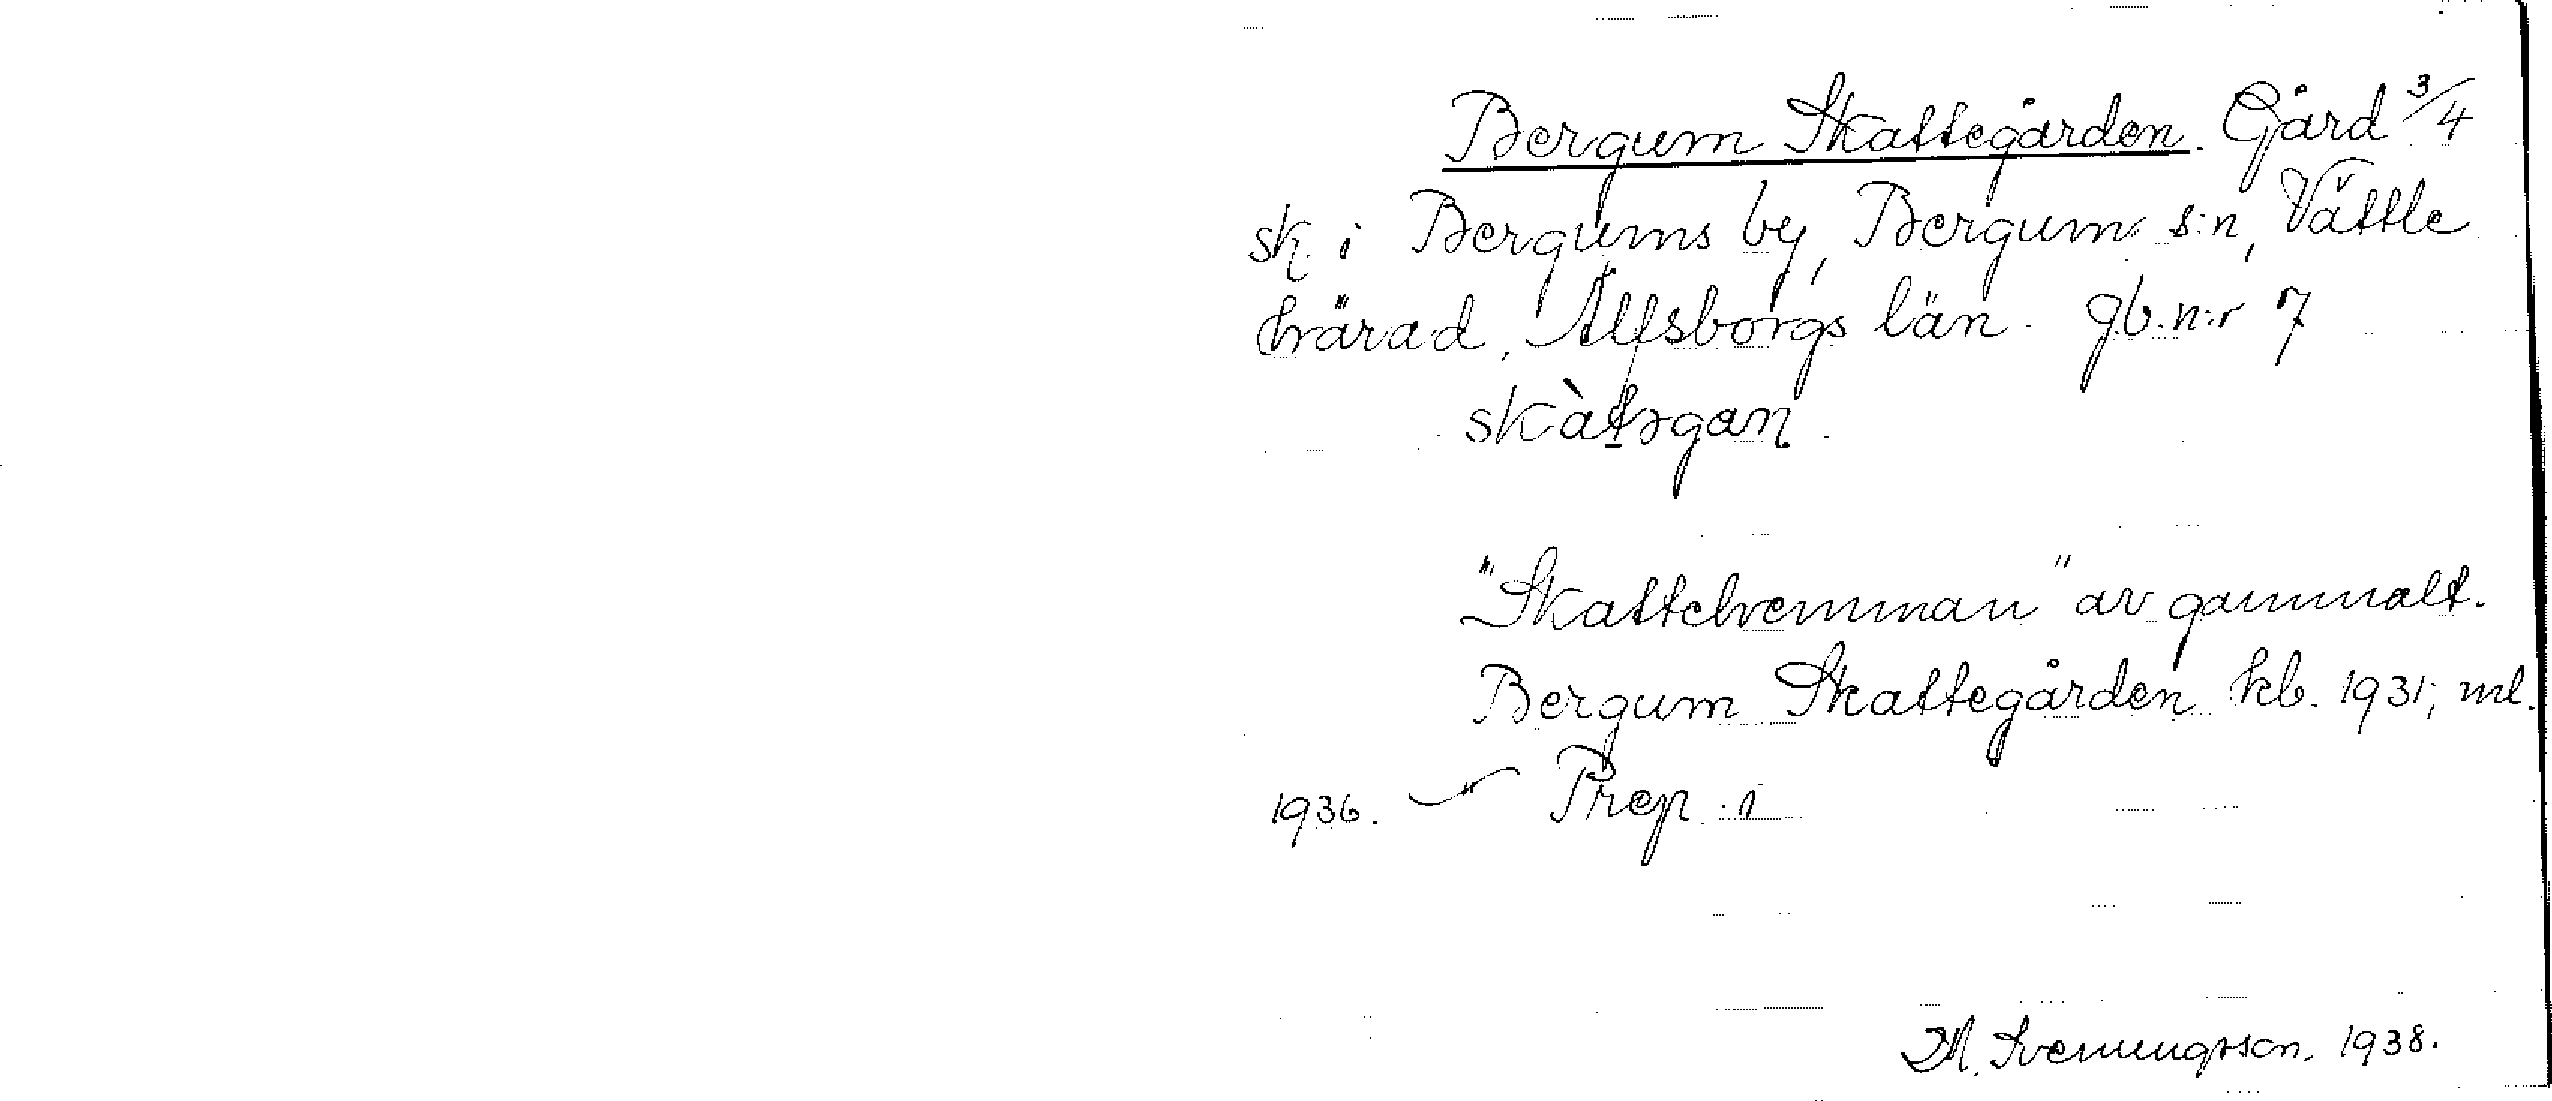 Bergum Skattegården. Gård 3/4
sk. i Bergums by, Bergum s:n, Vättle
härad, Älfsborgs län. gb.n:r 7
skàtəgaɳ.
"Skattehemman" av gammalt.
Bergum Skattegården kb. 1931; ml.
1936. Prep. i
M. Svenungsson. 1938.